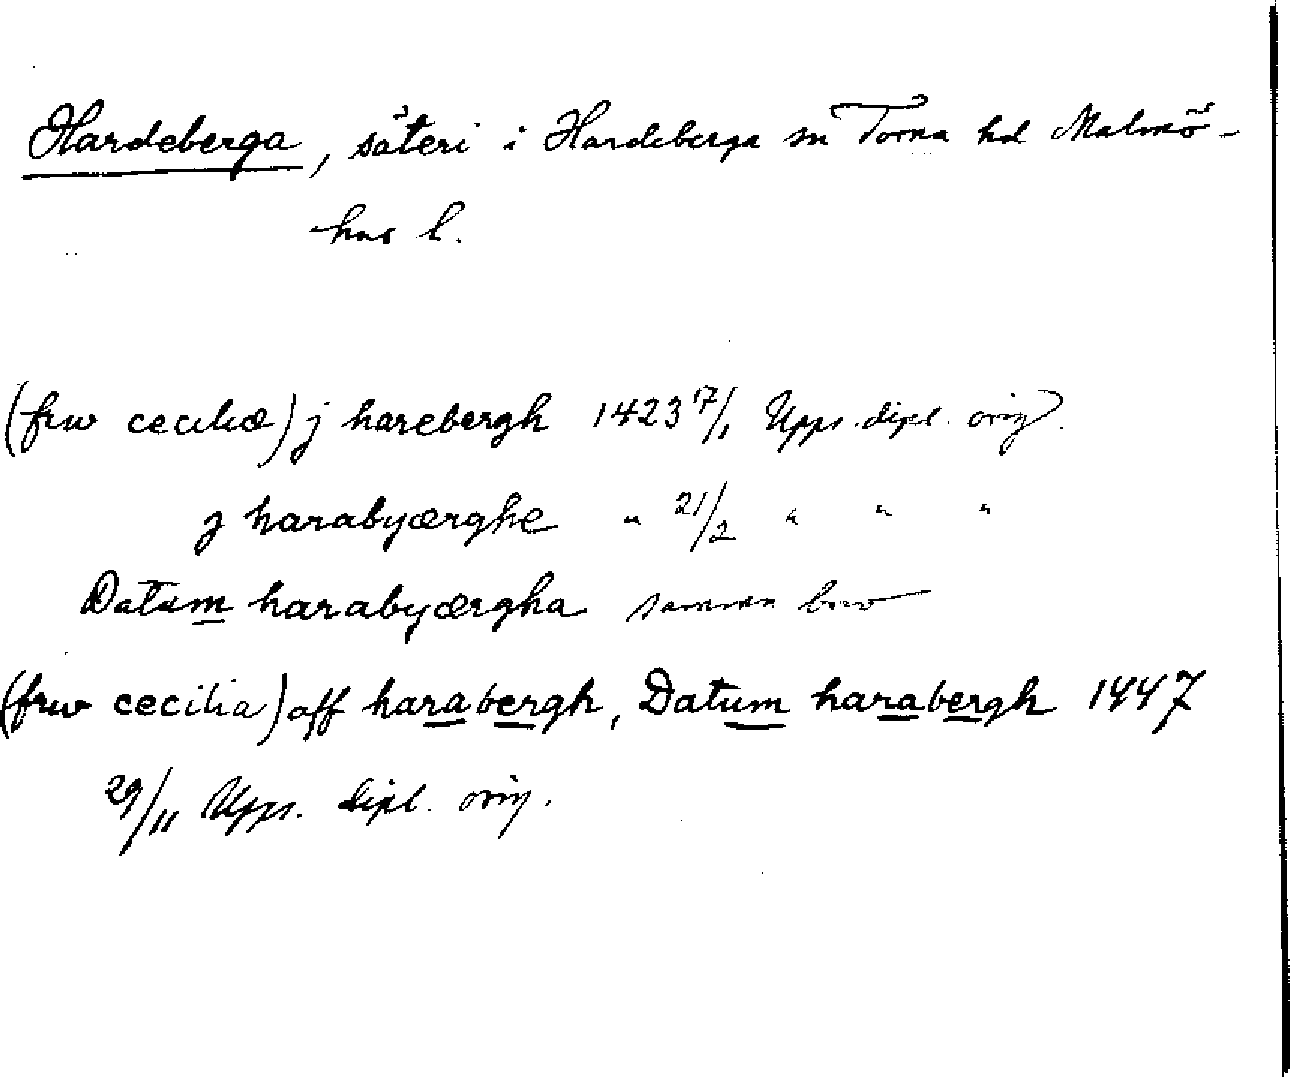 Hardeberga, säteri i Hardeberga sn Torna hd Malmö-
hus l.
(frw ceciliæ) j harebergh 1423 17/1 Upps. dipl. orig.
j harabyærghe " 21/2 " " "
Datum harabyærgha samma brev
(frw cecilia) aff harabergh, Datum harabergh 1447
29/11 Upps. dipl. orig.